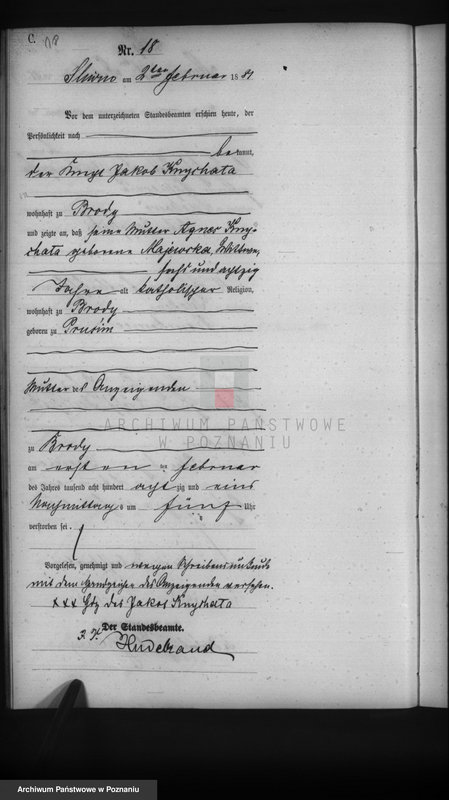 C.
Nr. 18
am 2ten Februar 1881
Vor dem unterzeichneten Standesbeamten erschien heute, der
Persönlichkeit nach
be kannt,
der Jakob Knychata
wohnhaft zu Brody
und zeigte an, daß seine Mutter Agnes Kny-
chata geborene Majewska, Wittwe,
sechs und achtzig
Jahre alt katholischer Religion,
wohnhaft zu Brody
geboren zu Prusim
Mutter des Anzeigenden
zu Brody
am ersten ten Februar
des Jahres tausend acht hundert acht zig und eins
Nachmittags um fünf Uhr
verstorben sei.
Vorgelesen, genehmigt und wegen Schreibensunkunde
mit dem Handzeichen des Anzeigenden versehen.
xxx Hdz des Jakob Knychata
Der Standesbeamte.
Hildebrand
ARCHIWUM PAŃSTWOWE
W POZNANIU
Archiwum Państwowe w Poznaniu